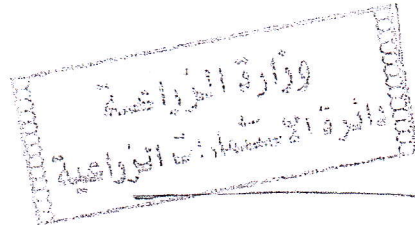 وزارة الزراعة
دائرة الاستثمارات الزراعية